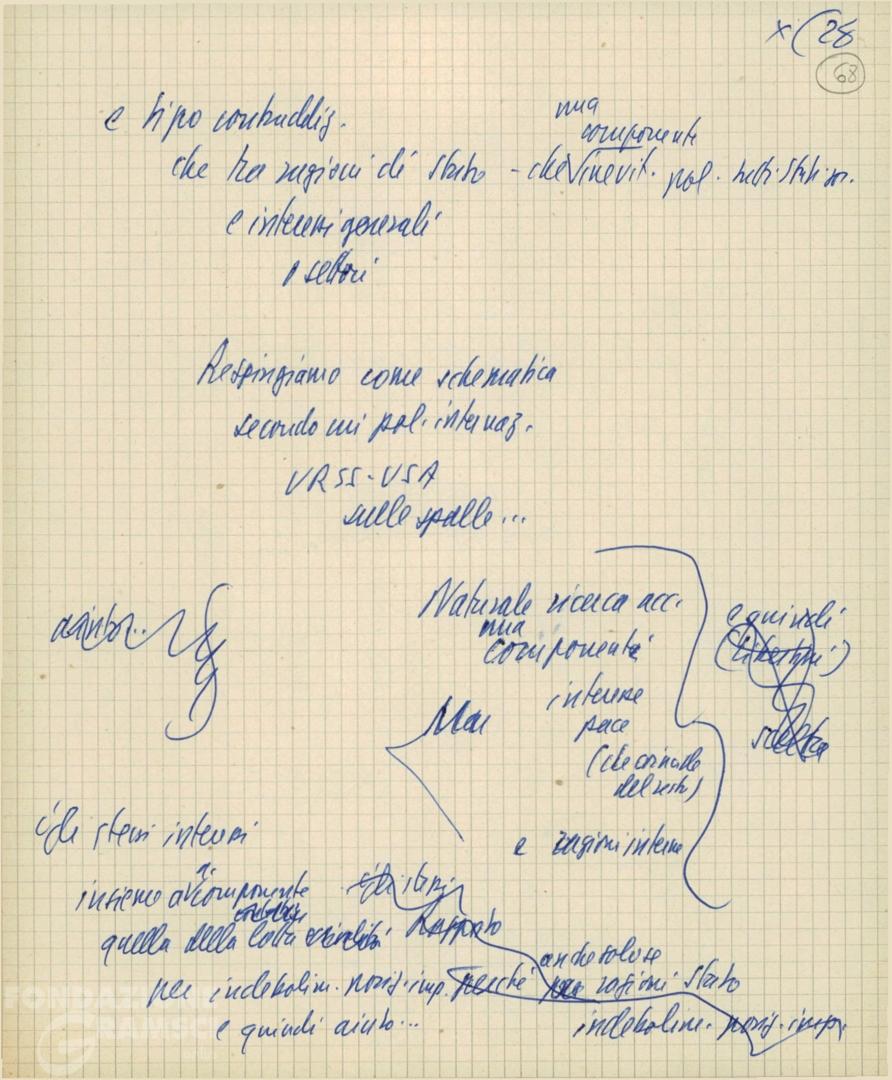 x (28
68
e tipo contraddiz.
una
componente
che tra ragioni di stato - che inevit. pol. tutti stati
e interessi generali
e settori
Respingiamo come schematica
secondo cui pol. internaz.
URSS-USA
sulle spalle...
Naturale ricerca acc.
una
componente
interesse
pace
(che coincide
del resto)
e ragioni interne
e quindi
scelta
Ma
Gli stessi interessi
insieme a componente
quella della lotta
Rapporto
per indebolim. posiz. imp. perché
anche solo se
ragioni stato
e quindi aiuto...
indebolim. posiz. imp.
FONDAZIONE
GRAMSCI